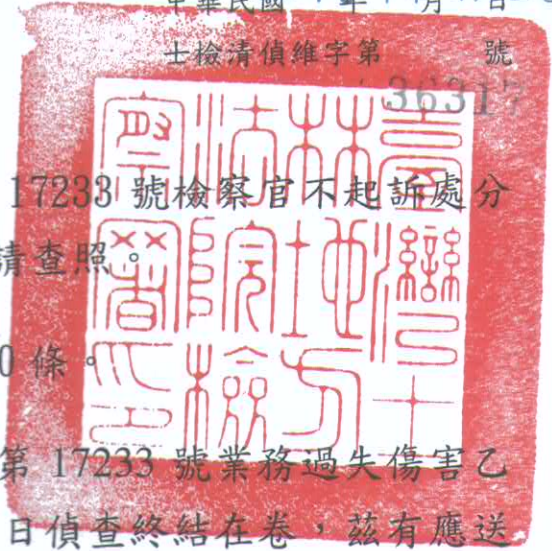 中華民國 年 月 日
士檢清偵維字第 號
36317
17233 號檢察官不起訴處分
請查照。
0 條。
第 17233 號業務過失傷害乙
日偵查終結在卷，茲有應送
臺灣士
林地方
法院檢
察署印